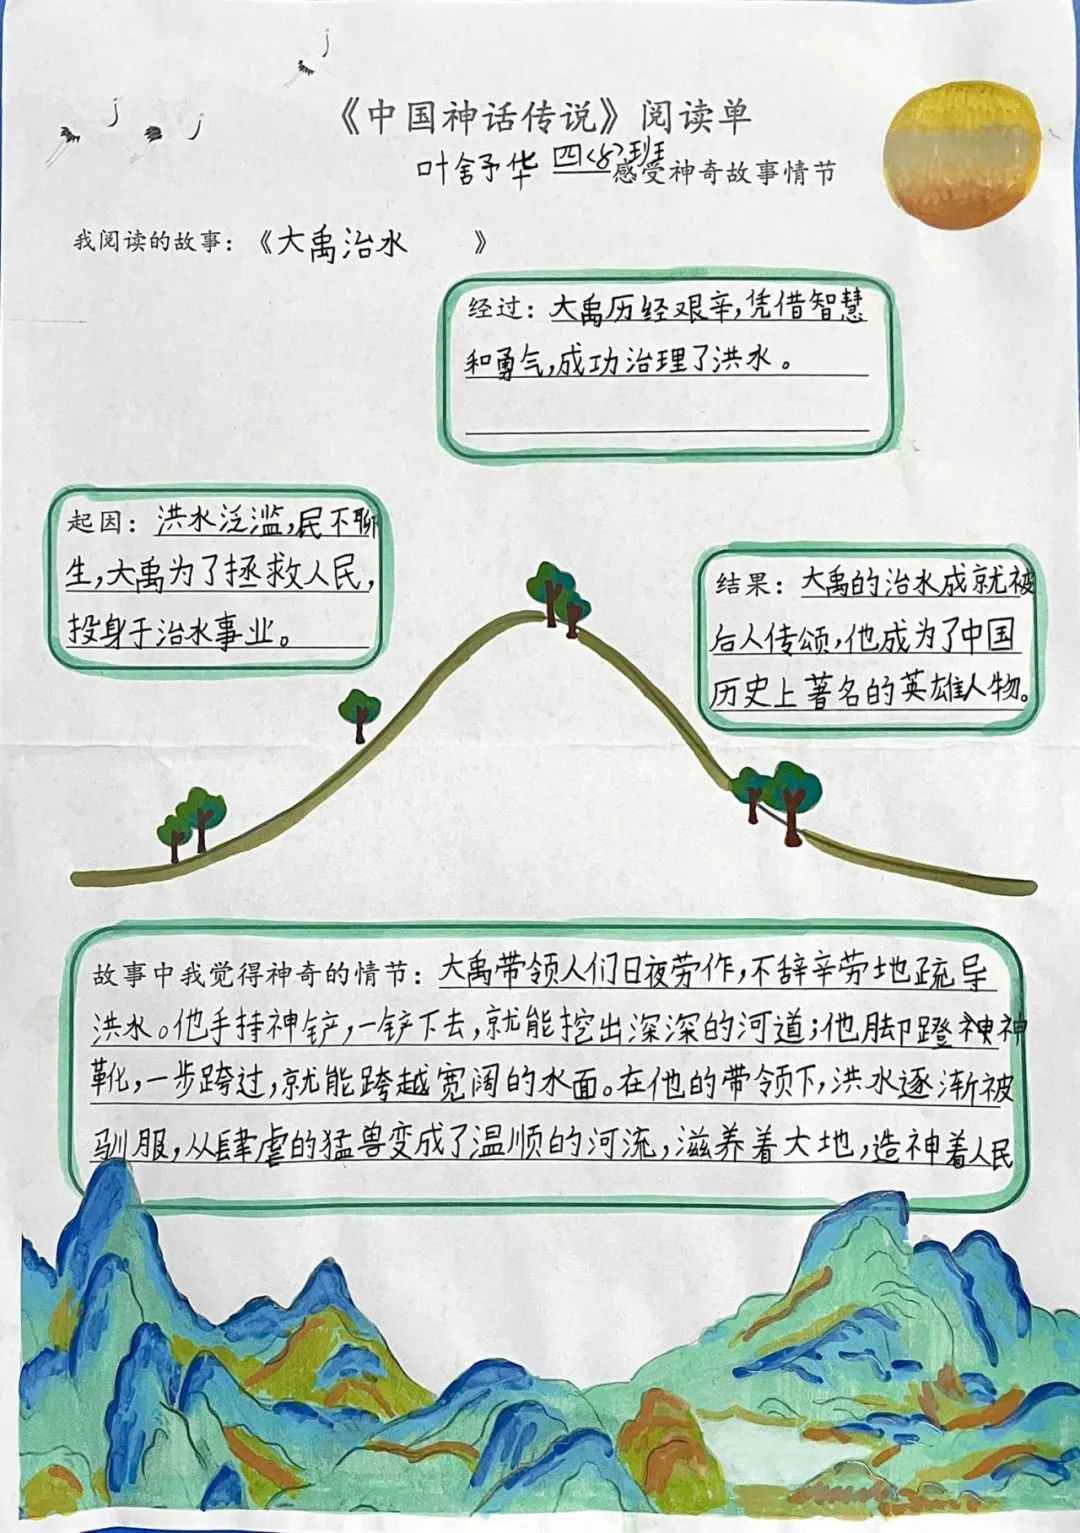 《中国神话传说》阅读单
叶舍予华 四(8)班
感受神奇故事情节
我阅读的故事：《大禹治水》
经过：大禹历经艰辛，凭借智慧
和勇气，成功治理了洪水。
起因：洪水泛滥，民不聊
生，大禹为了拯救人民，
投身于治水事业。
结果：大禹的治水成就被
后人传颂，他成为了中国
历史上著名的英雄人物。
故事中我觉得神奇的情节：大禹带领人们日夜劳作，不辞辛劳地疏导
洪水。他手持神铲，一铲下去，就能挖出深深的河道；他脚蹬神
靴，一步跨过，就能跨越宽阔的水面。在他的带领下，洪水逐渐被
驯服，从肆虐的猛兽变成了温顺的河流，滋养着大地，造神着人民